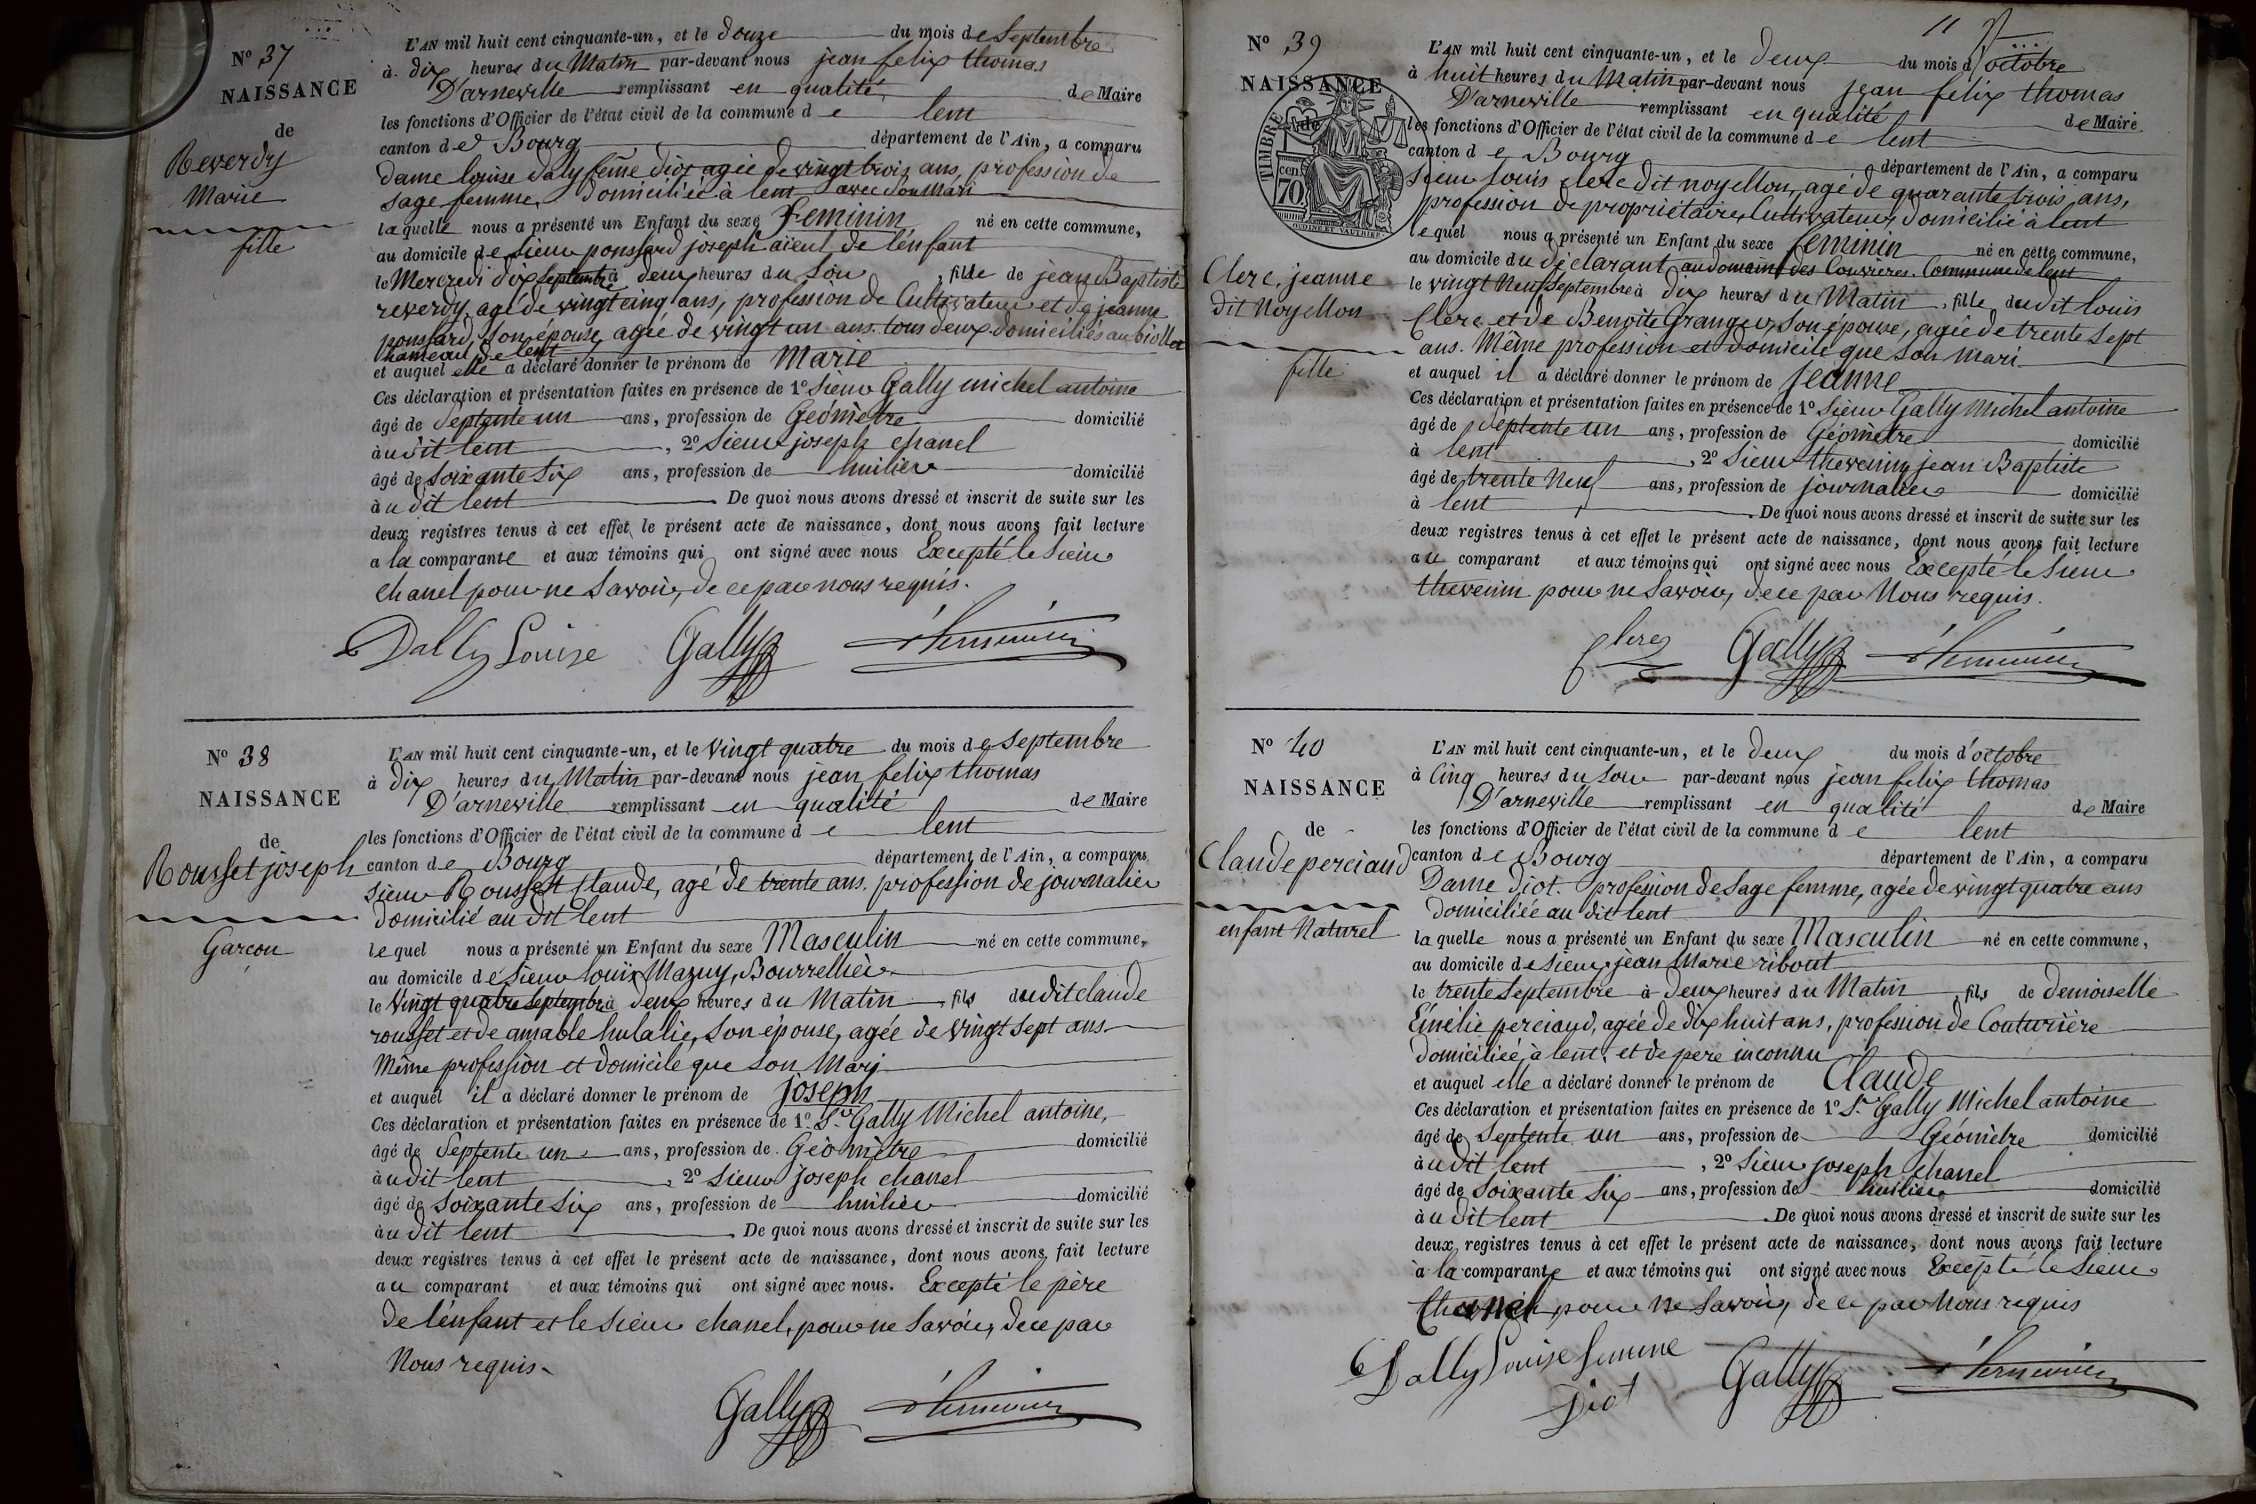 N° 37
NAISSANCE
de
Reverdy
Marie
fille
L'AN mil huit cent cinquante-un, et le douze du mois de Septembre
à dix heures du Matin par-devant nous jean felix thomas
D'arneville remplissant en qualité de Maire
les fonctions d'Officier de l'état civil de la commune de lent
canton de Bourg département de l'Ain, a comparu
Dame louise daly feme diot agée de vingt trois ans, profession de
Sage femme, domiciliée à lent avec son Mari
laquelle nous a présenté un Enfant du sexe Feminin né en cette commune,
au domicile de Sieur poussard joseph aïeul de l'énfant
le Mercredi dix Septembre à deux heures du Soir, fille de jean Baptiste
reverdy, agé de vingt cinq ans, profession de Cultivateur et de jeanne
poussard, Son épouse, agée de vingt un ans. tous deux domiciliés au
hameau de lent
et auquel elle a déclaré donner le prénom de Marie
Ces déclaration et présentation faites en présence de 1° Sieur Gally michel antoine
âgé de Septente un ans, profession de Géomètre domicilié
à udit lent, 2° Sieur joseph chanel
âgé de Soixante Six ans, profession de huilier domicilié
à u dit lent De quoi nous avons dressé et inscrit de suite sur les
deux registres tenus à cet effet le présent acte de naissance, dont nous avons fait lecture
a la comparante et aux témoins qui ont signé avec nous Excepté le Sieur
chanel pour ne Savoir, de ce par nous requis.
Dally Louise Gally
N° 38
NAISSANCE
de
Rousset joseph
Garçon
L'AN mil huit cent cinquante-un, et le Vingt quatre du mois de Septembre
à dix heures du Matin par-devant nous jean felix thomas
D'arneville remplissant en qualité de Maire
les fonctions d'Officier de l'état civil de la commune de lent
canton de Bourg département de l'Ain, a comparu
Sieur Rousset Claude, agé de trente ans. profession de journalier
domicilié au dit lent
lequel nous a présenté un Enfant du sexe Masculin né en cette commune,
au domicile de Sieur louis Mazuy, Bourrellier
le Vingt quatre Septembre à deux heures du Matin, fils dudit claude
rousset et de amable hulalie, Son épouse, agée de Vingt Sept ans
Même profession et domicile que Son Mari
et auquel il a déclaré donner le prénom de joseph
Ces déclaration et présentation faites en présence de 1° Sr Gally Michel antoine,
âgé de Septente un ans, profession de Géomètre domicilié
à udit lent, 2° Sieur joseph chanel
âgé de Soixante Six ans, profession de huilier domicilié
à u dit lent De quoi nous avons dressé et inscrit de suite sur les
deux registres tenus à cet effet le présent acte de naissance, dont nous avons fait lecture
au comparant et aux témoins qui ont signé avec nous. Excepté le père
De l'énfant et le Sieur chanel, pour ne Savoir, de ce par
Nous requis
Gally
11
N° 39
NAISSANCE
de
TIMBRE
70 cen
OUDINE ET VAUTHIER
Clerc, jeanne
dit Noyellon
fille
L'AN mil huit cent cinquante-un, et le deux du mois d'octobre
à huit heures du Matin par-devant nous jean felix thomas
D'arneville remplissant en qualité de Maire
les fonctions d'Officier de l'état civil de la commune de lent
canton de Bourg département de l'Ain, a comparu
Sieur louis clerc dit noyellon, agé de quarante trois ans,
profession de propriétaire, Cultivateur, domicilié à lent
lequel nous a présenté un Enfant du sexe feminin né en cette commune,
au domicile du déclarant au domaine des Couvrières. Commune de lent
le vingt Neuf Septembre à dix heures du Matin, fille dudit louis
Clerc et de Benoite Granger, Son épouse, agée de trente Sept
ans. Même profession et domicile que Son mari
et auquel il a déclaré donner le prénom de jeanne
Ces déclaration et présentation faites en présence de 1° Sieur Gally Michel antoine
âgé de Septente un ans, profession de Géomètre domicilié
à lent, 2° Sieur thevenin, jean Baptiste
âgé de trente Neuf ans, profession de journalier domicilié
à lent De quoi nous avons dressé et inscrit de suite sur les
deux registres tenus à cet effet le présent acte de naissance, dont nous avons fait lecture
au comparant et aux témoins qui ont signé avec nous Excepté le Sieur
thevenin pour ne Savoir, de ce par Nous requis.
Clerc Gally
N° 40
NAISSANCE
de
Claude perciaud
enfant Naturel
L'AN mil huit cent cinquante-un, et le deux du mois d'octobre
à Cinq heures du Soir par-devant nous jean felix thomas
D'arneville remplissant en qualité de Maire
les fonctions d'Officier de l'état civil de la commune de lent
canton de Bourg département de l'Ain, a comparu
Dame diot. profession de Sage femme, agée de vingt quatre ans
domiciliée au dit lent
laquelle nous a présenté un Enfant du sexe Masculin né en cette commune,
au domicile de Sieur jean Marie ribout
le trente Septembre à deux heures du Matin, fils de demoiselle
Emélie perciaud, agée de dix huit ans, profession de Couturière
domiciliée, à lent. et de père inconnu
et auquel elle a déclaré donner le prénom de Claude
Ces déclaration et présentation faites en présence de 1° Sr Gally Michel antoine
âgé de Septente un ans, profession de Géomètre domicilié
à udit lent, 2° Sieur joseph chanel
âgé de Soixante Six ans, profession de huilier domicilié
à u dit lent De quoi nous avons dressé et inscrit de suite sur les
deux registres tenus à cet effet le présent acte de naissance, dont nous avons fait lecture
à la comparante et aux témoins qui ont signé avec nous Excepté le Sieur
Chanel, pour Ne Savoir, de ce par Nous requis
Dally Louise femme
Diot
Gally